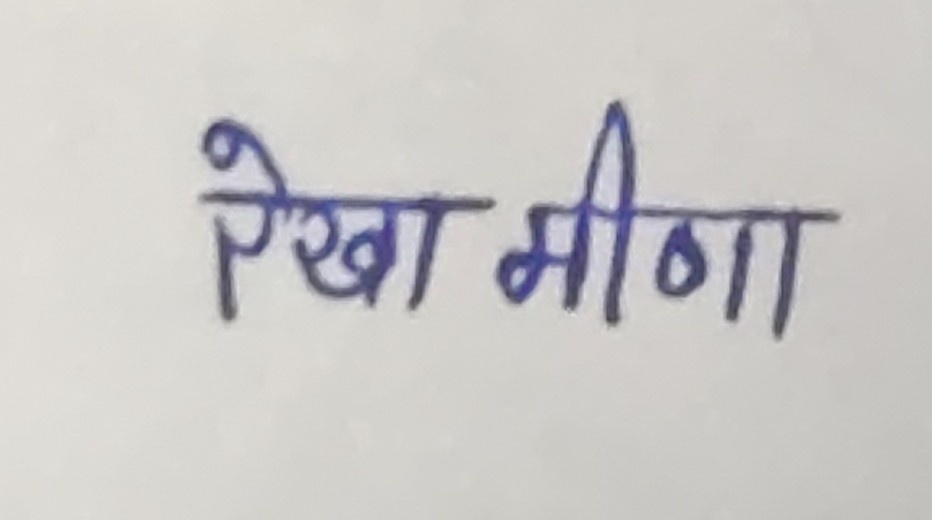 रेखा मीणा